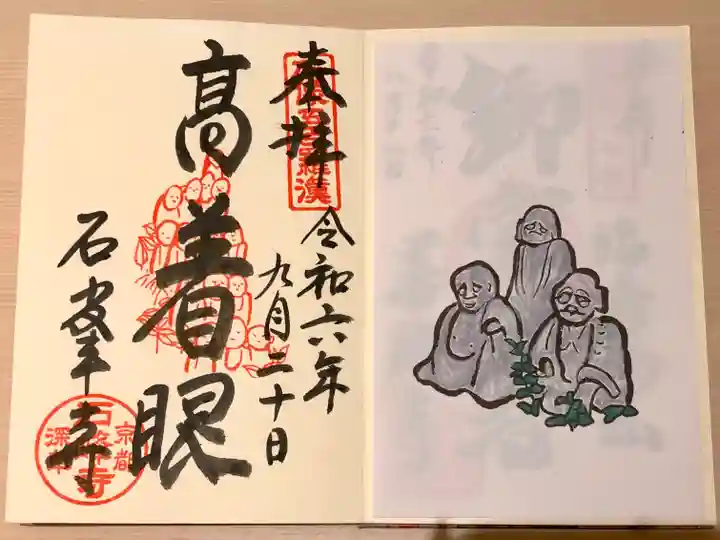 奉拝
令和六年
九月二十日
高着眼
石峯寺
羅漢
京都
深草
石峰寺